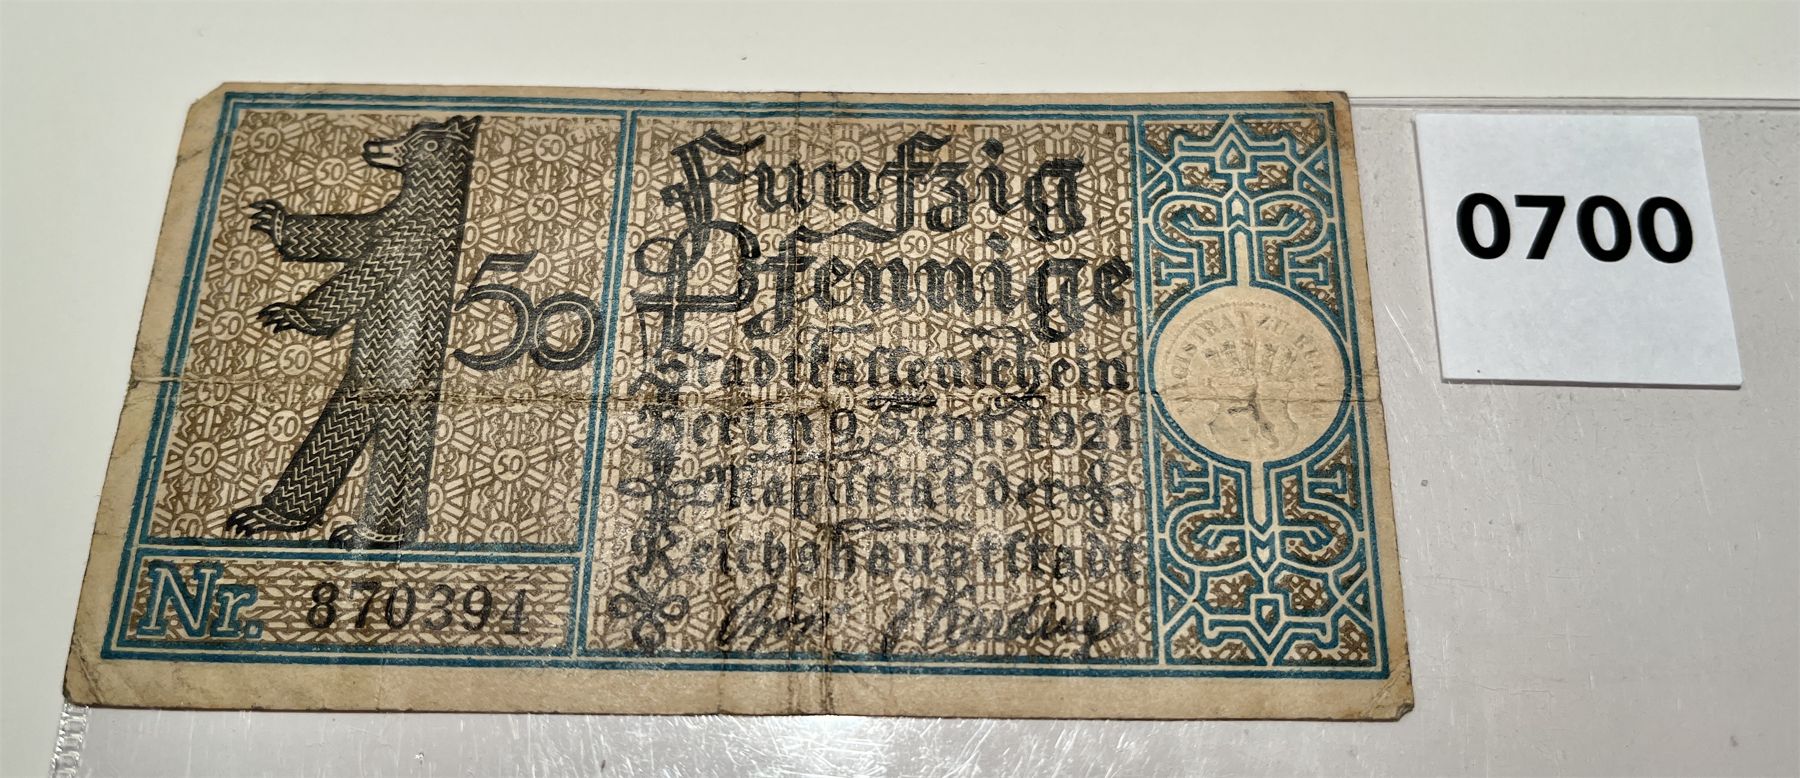 Funfzig
Pfennige
50
Stadtkassenschein
Berlin 9. Sept. 1921
Magistrat der
Reichshauptstadt
Nr. 870394
MAGISTRAT ZU BERLIN
0700